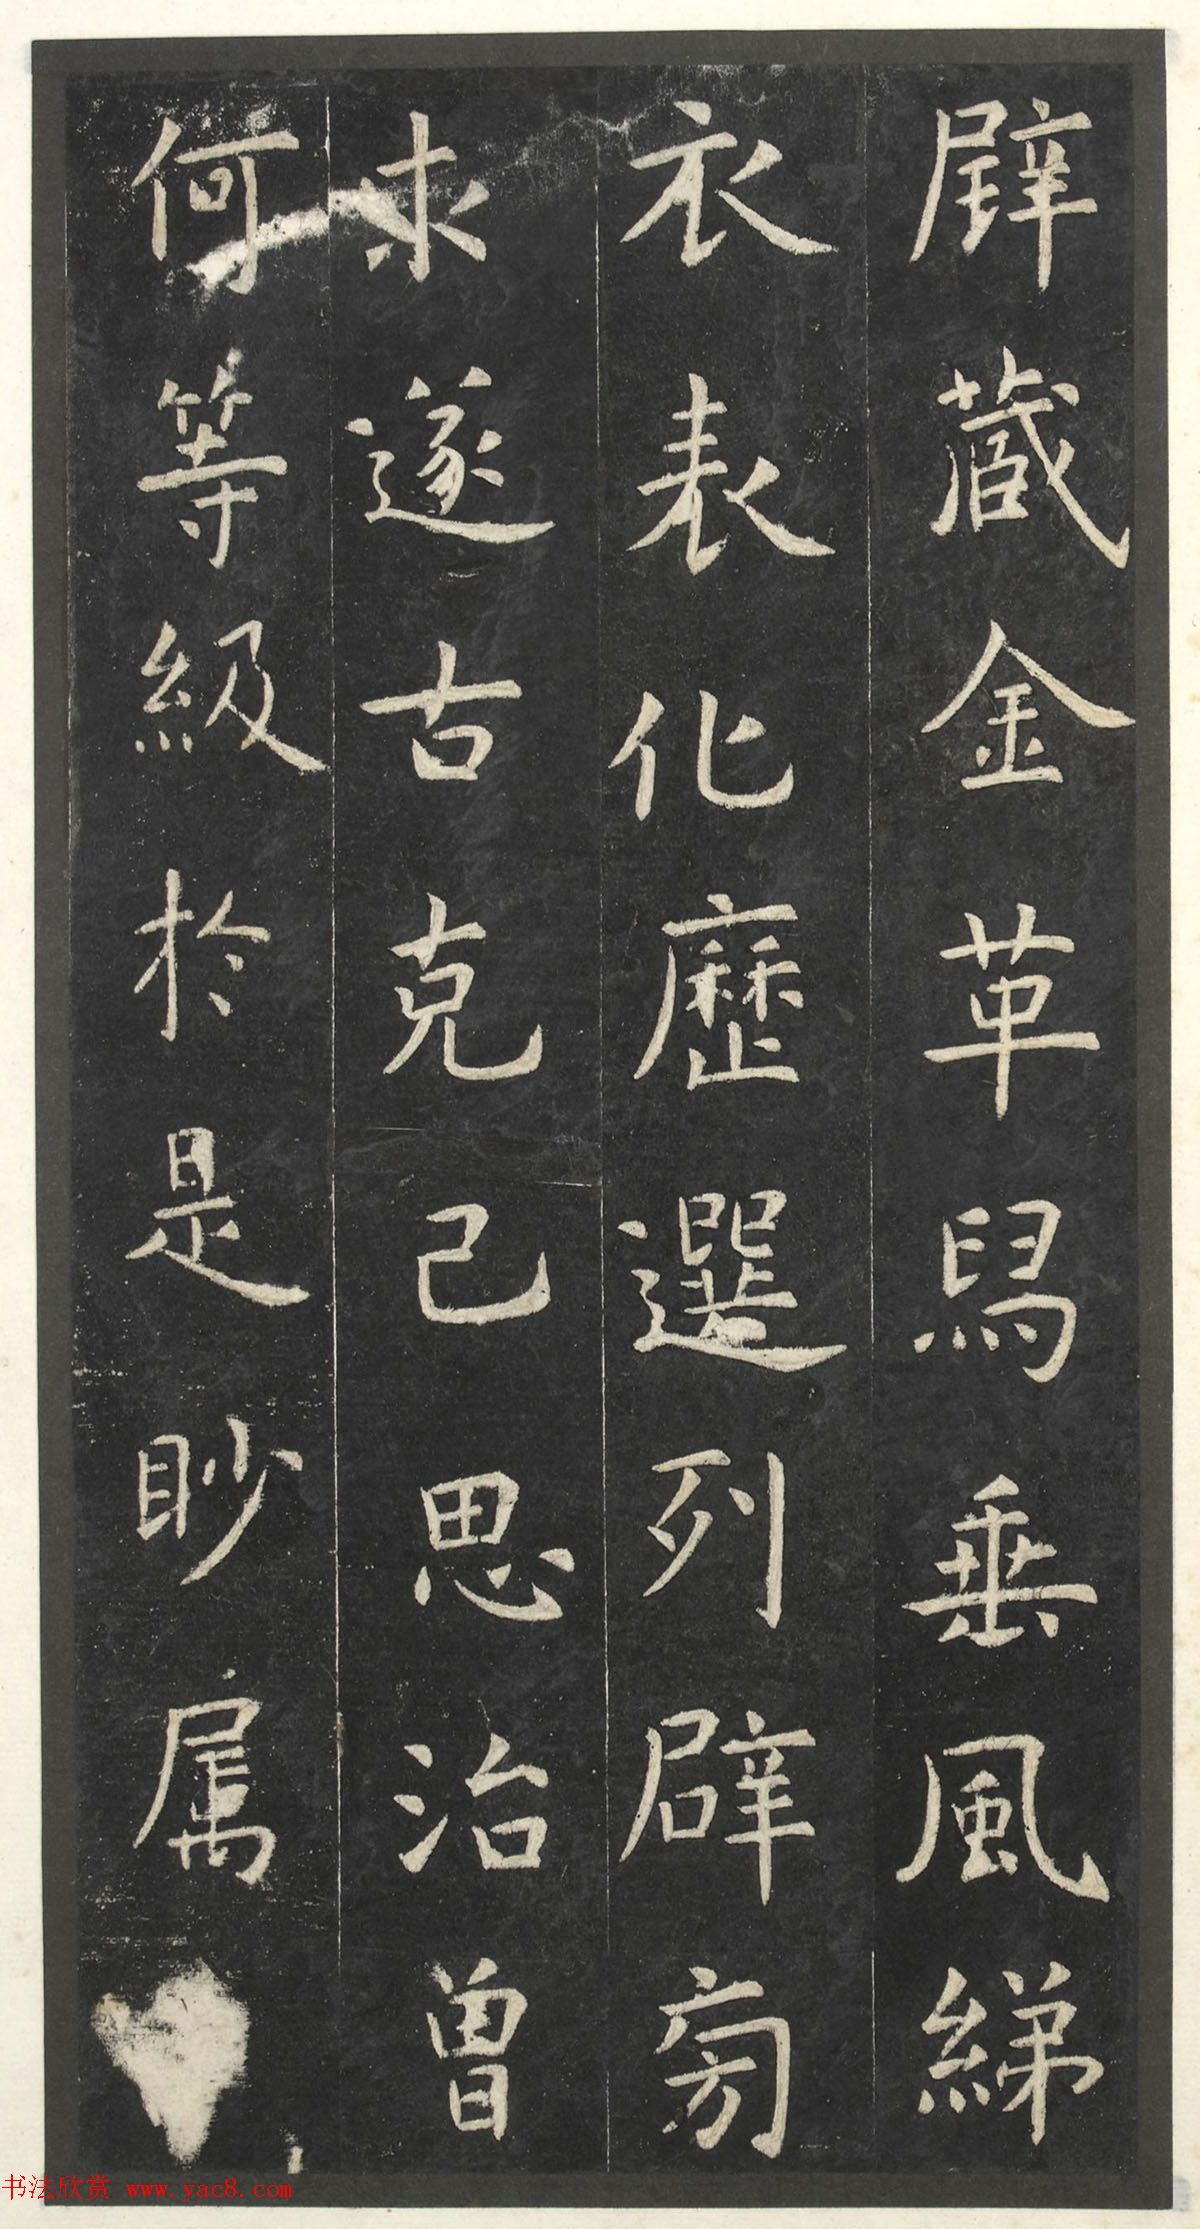 辟藏金革舄垂風綈
衣表化歷選列辟旁
求遂古克己思治曾
何等級於是眇属
书法欣赏 www.yac8.com